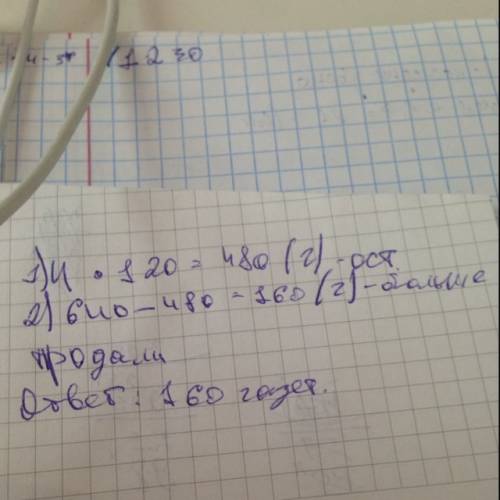 4 - 5
1230
1) 4 • 120 = 480 (г) - ост
2) 640 - 480 = 160 (г) - больше
продали
Ответ: 160 газет.